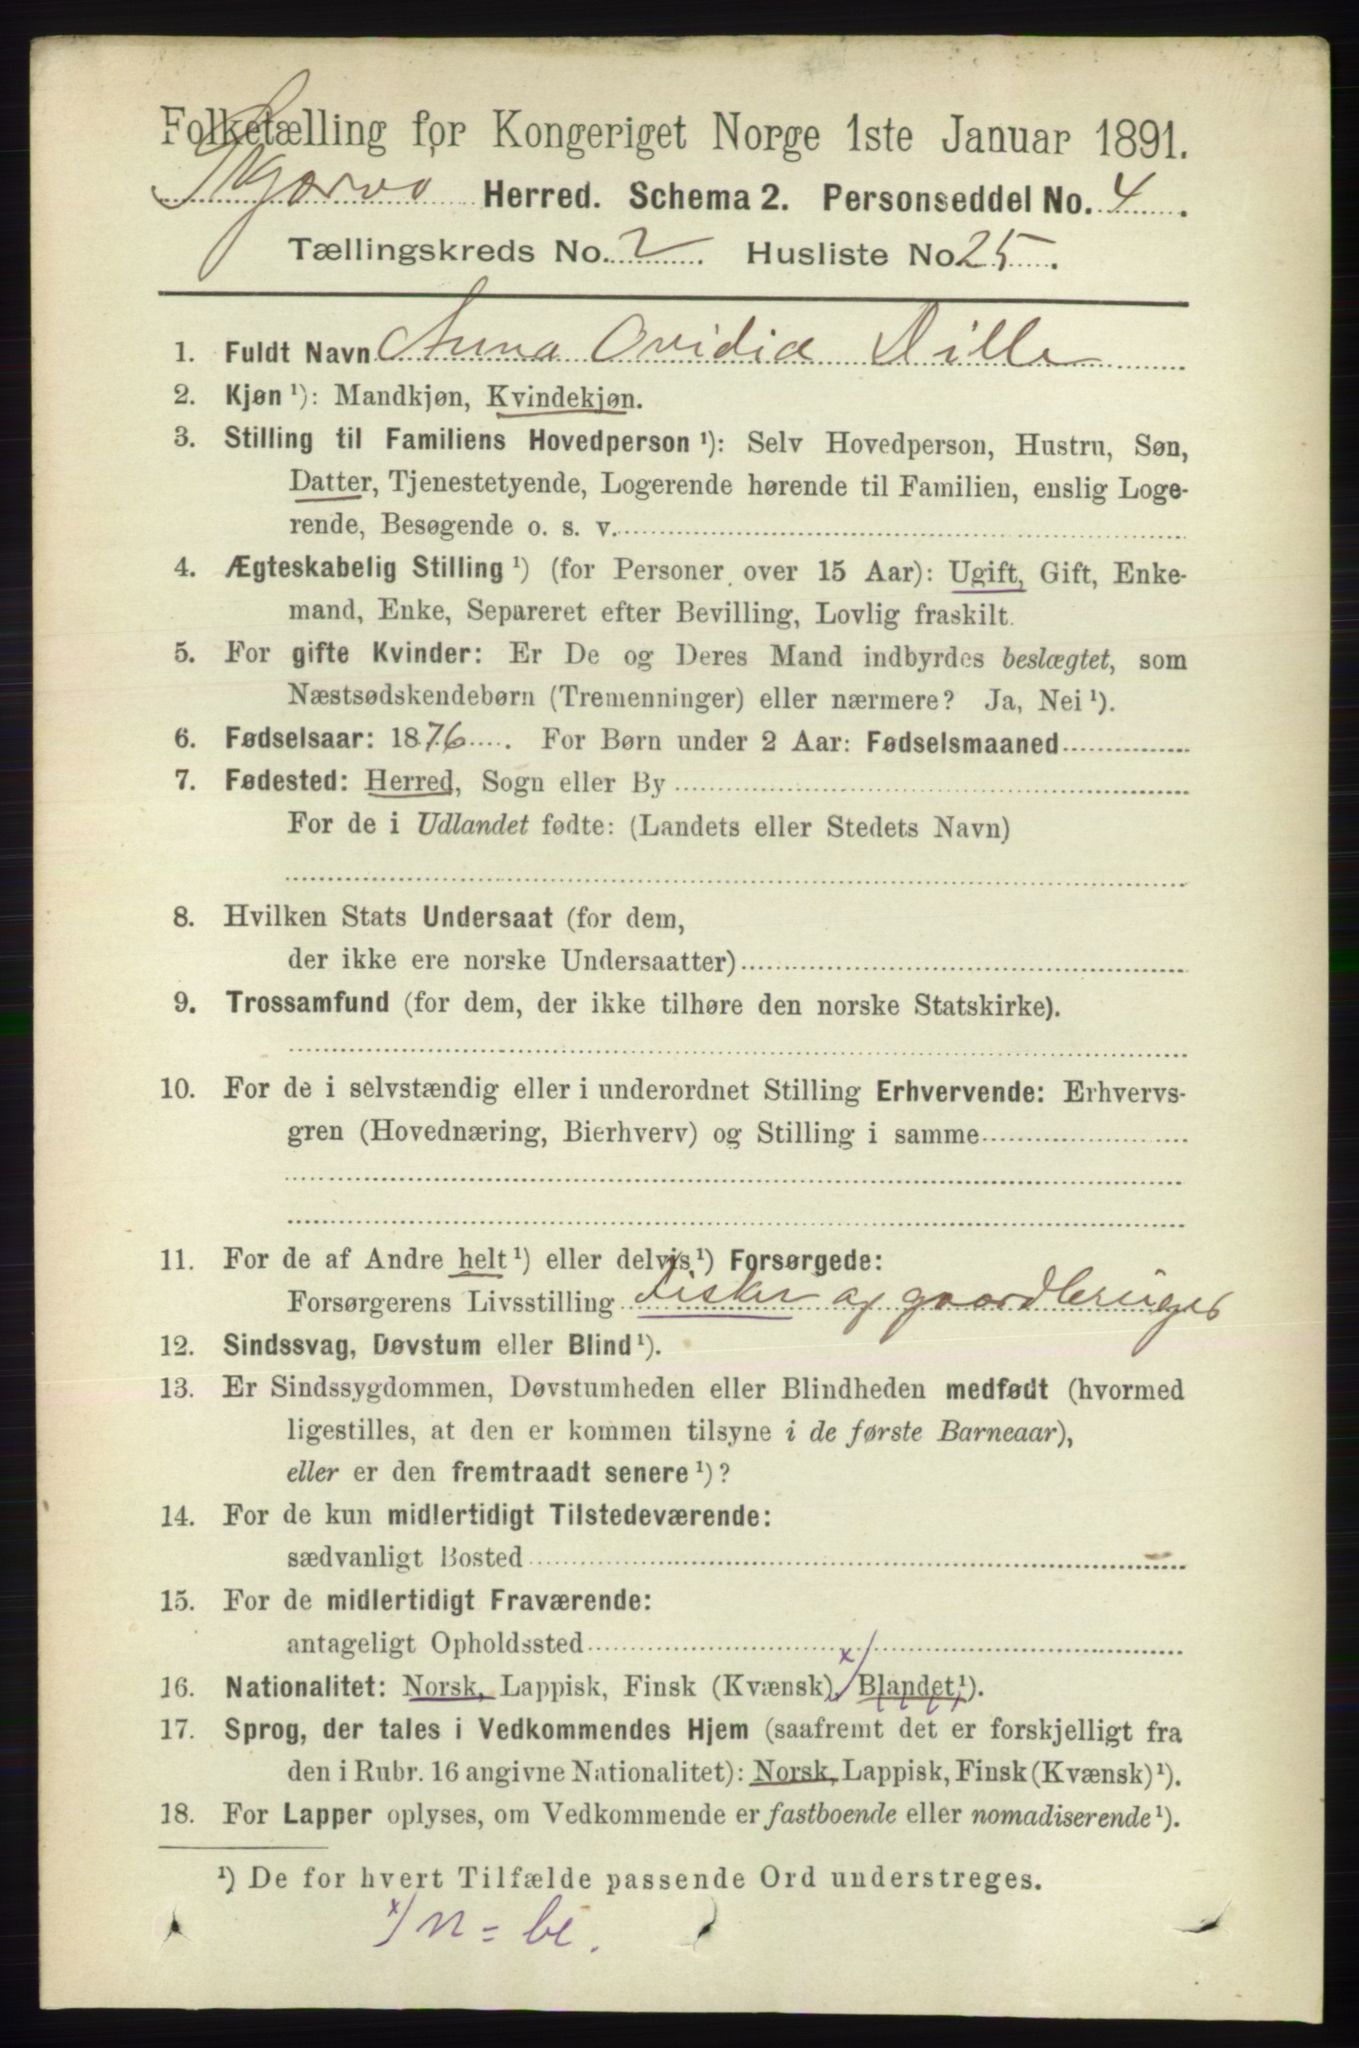 Folketælling for Kongeriget Norge 1ste Januar 1891.
Skjervø Herred. Schema 2. Personseddel No. 4.
Tællingskreds No. 2. Husliste No 25.
1. Fuldt Navn Anna Ovidia Dille
2. Kjøn ¹): Mandkjøn, Kvindekjøn.
3. Stilling til Familiens Hovedperson ¹): Selv Hovedperson, Hustru, Søn,
Datter, Tjenestetyende, Logerende hørende til Familien, enslig Loge-
rende, Besøgende o. s. v.
4. Ægteskabelig Stilling ¹) (for Personer over 15 Aar): Ugift, Gift, Enke-
mand, Enke, Separeret efter Bevilling, Lovlig fraskilt.
5. For gifte Kvinder: Er De og Deres Mand indbyrdes beslægtet, som
Næstsødskendebørn (Tremenninger) eller nærmere? Ja, Nei ¹).
6. Fødselsaar: 1876. For Børn under 2 Aar: Fødselsmaaned
7. Fødested: Herred, Sogn eller By
For de i Udlandet fødte: (Landets eller Stedets Navn)
8. Hvilken Stats Undersaat (for dem,
der ikke ere norske Undersaatter)
9. Trossamfund (for dem, der ikke tilhøre den norske Statskirke).
10. For de i selvstændig eller i underordnet Stilling Erhvervende: Erhvervs-
gren (Hovednæring, Bierhverv) og Stilling i samme
11. For de af Andre helt ¹) eller delvis ¹) Forsørgede:
Forsørgerens Livsstilling Fisker og gaardbruger
12. Sindssvag, Døvstum eller Blind ¹).
13. Er Sindssygdommen, Døvstumheden eller Blindheden medfødt (hvormed
ligestilles, at den er kommen tilsyne i de første Barneaar),
eller er den fremtraadt senere ¹)?
14. For de kun midlertidigt Tilstedeværende:
sædvanligt Bosted
15. For de midlertidigt Fraværende:
antageligt Opholdssted
16. Nationalitet: Norsk, Lappisk, Finsk (Kvænsk), x/ Blandet ¹).
17. Sprog, der tales i Vedkommendes Hjem (saafremt det er forskjelligt fra
den i Rubr. 16 angivne Nationalitet): Norsk, Lappisk, Finsk (Kvænsk) ¹).
18. For Lapper oplyses, om Vedkommende er fastboende eller nomadiserende ¹).
¹) De for hvert Tilfælde passende Ord understreges.
x/ n = bl.